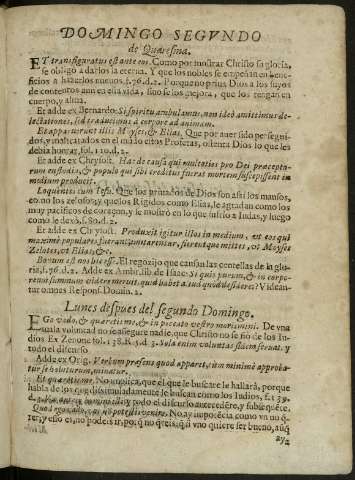 DOMINGO SEGVNDO
de Quaresma.
ET transfiguratus est ante eos. Como por mostrar Christo su gloria,
se obligò a darlos la eterna. Y que los nobles se empeñan en bene-
ficios a hazerlos nueuos, f.76.d.2. Porque no priua Dios a los suyos
de contentos aun en esta vida, sino se los mejora, que los tengan en
cuerpo, y alma.
Et adde ex Bernardo: Si spiritu ambulamus, non ideo amittimus de-
lectationes, sed traducimus à corpore ad animam.
Et apparuerunt illis Moyses, & Elias, Que por auer sido persegui-
dos, y maltratados en el mũdo estos Profetas, ostenta Dios lo que les
debia honrar, fol.110.d.2.
Et adde ex Chrysost. Hac de causa qui multoties pro Dei præceptu-
rum custodia, & populo qui sibi creditus fuerat mortem suscepissent in
medium producit.
Loquentes cum Iesu. Que los priuados de Dios son assi los mansos,
como los zelosos; y que los Rigidos como Elias, le agradan como los
muy pacificos de coraçon, y le mostrò en lo que sufrio a Iudas, y luego
como le dexò, f.80.d.2.
Et adde ex Chrysost. Produxit igitur illos in medium, vt eos qui
maximè populares fuerant imitarentur, fierent que mites, vt Moyses
Zelotes, vt Elias, &c.
Bonum est nos hic esse. El regozijo que causan las centellas de la glo-
ria, f.76.d.2. Adde ex Amb. lib. de Isaac: Si quis parum, & in corpo-
reum summum videre meruit, quid habet aliud quod desideret? Videan-
tur omnes Respons. Domin. 2.
Lunes despues del segundo Domingo.
EGo vado, & quæretis me, & in peccato vestro moriemini. De vna
mala voluntad no se assegure nadie, que Christo no se fiò de los Iu-
dios. Ex Zenone fol.178.R.5.d. Sola enim voluntas
todo el discurso.
Adde ex Orig. Verbum præsens quod apparet, iam minimè approba-
tur se habiturum, minatur.
Et quæretis me. No implica, que el que le buscare le hallarà, porque
habla de los que dissimuladamente le buscan como los Iudios, f.139.
d. y todo el discurso antecedẽte, y subsiquẽte.
Quo ego vado, vos nõ potestis venire. No ay impotẽcia como vn no q̃-
rer, y esso es, no podeis ir, porq̃ no q̃reis; q̃ si vno quiere ser bueno, aũq̃
ay a